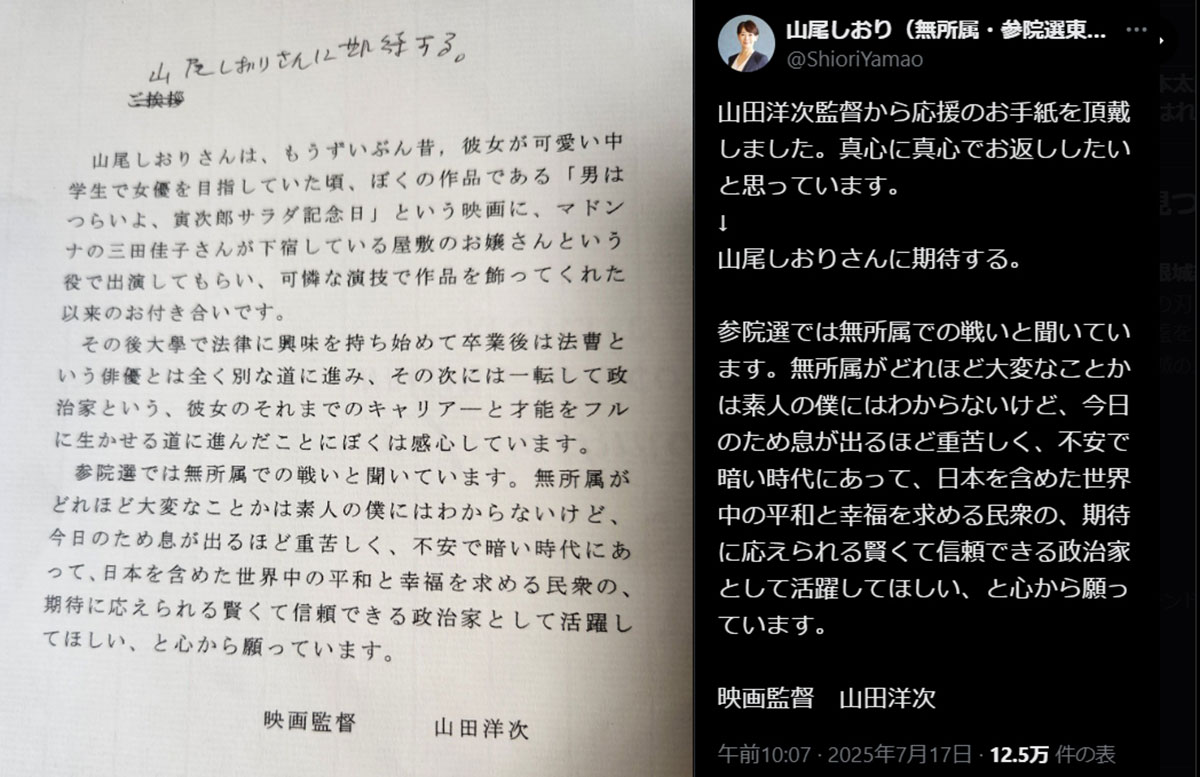 山尾しおりさんに期待する。
ご挨拶
山尾しおりさんは、もうずいぶん昔，彼女が可愛い中
学生で女優を目指していた頃、ぼくの作品である「男は
つらいよ、寅次郎サラダ記念日」という映画に、マドン
ナの三田佳子さんが下宿している屋敷のお嬢さんという
役で出演してもらい、可憐な演技で作品を飾ってくれた
以来のお付き合いです。
その後大學で法律に興味を持ち始めて卒業後は法曹と
いう俳優とは全く別な道に進み、その次には一転して政
治家という、彼女のそれまでのキャリアーと才能をフル
に生かせる道に進んだことにぼくは感心しています。
参院選では無所属での戦いと聞いています。無所属が
どれほど大変なことかは素人の僕にはわからないけど、
今日のため息が出るほど重苦しく、不安で暗い時代にあ
って、日本を含めた世界中の平和と幸福を求める民衆の、
期待に応えられる賢くて信頼できる政治家として活躍し
てほしい、と心から願っています。
映画監督　山田洋次
山尾しおり（無所属・参院選東...
@ShioriYamao
山田洋次監督から応援のお手紙を頂戴
しました。真心に真心でお返ししたい
と思っています。
↓
山尾しおりさんに期待する。
参院選では無所属での戦いと聞いてい
ます。無所属がどれほど大変なことか
は素人の僕にはわからないけど、今日
のため息が出るほど重苦しく、不安で
暗い時代にあって、日本を含めた世界
中の平和と幸福を求める民衆の、期待
に応えられる賢くて信頼できる政治家
として活躍してほしい、と心から願っ
ています。
映画監督　山田洋次
午前10:07 · 2025年7月17日 · 12.5万 件の表